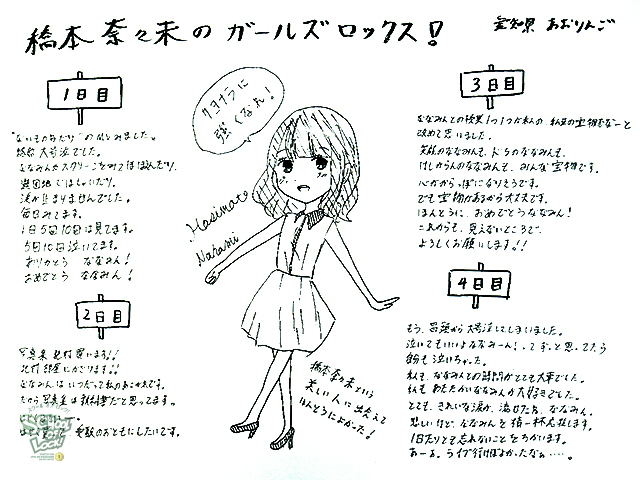 橋本奈々未のガールズロックス!
愛知県 あおりんご
1日目
"ないものねだり"のMVみました。
結局大号泣でした。
ななみんがスクリーンをみてほほえんだり、
団地ではしゃいだり、
涙が止まりませんでした。
毎日みてます。
1日5回10回は見てます。
5回10回泣いてます。
ありがとう ななみん!
おめでとう ななみん!
2日目
写真集 絶対買います!!
ななみんはいつだって私のあこがれです。
だから写真集は教科書だと思ってます。
受験のおともにしたいです。
サヨナラに
強くなれ!
Hasimoto
Nanami
橋本奈々未という
美しい人に出会えて
ほんとうによかった!
3日目
ななみんとの授業1つ1つが本当の
改めて思いました。
笑顔のななみんも、ドSのななみんも、
けしからんのななみんも、みんな宝物です。
心がからっぽになりそうです。
でも宝物があるから大丈夫です。
ほんとうに、おめでとうななみん!
これからも、見えないところで、
よろしくお願いします!!
4日目
もう、冒頭から大号泣してしまいました。
泣いてもいいよななみーん!ってずっと思ってたら
私も、ななみんとの時間がとても大事でした。
私も、あたたかいななみんが大好きでした。
とても、きれいな涙が、流せたね、ななみん。
悲しいけど、ななみんを精一杯応援します。
1日たりとも忘れないことをちかいます。
あーあ。ライブ行けばよかったなぁ・・・。